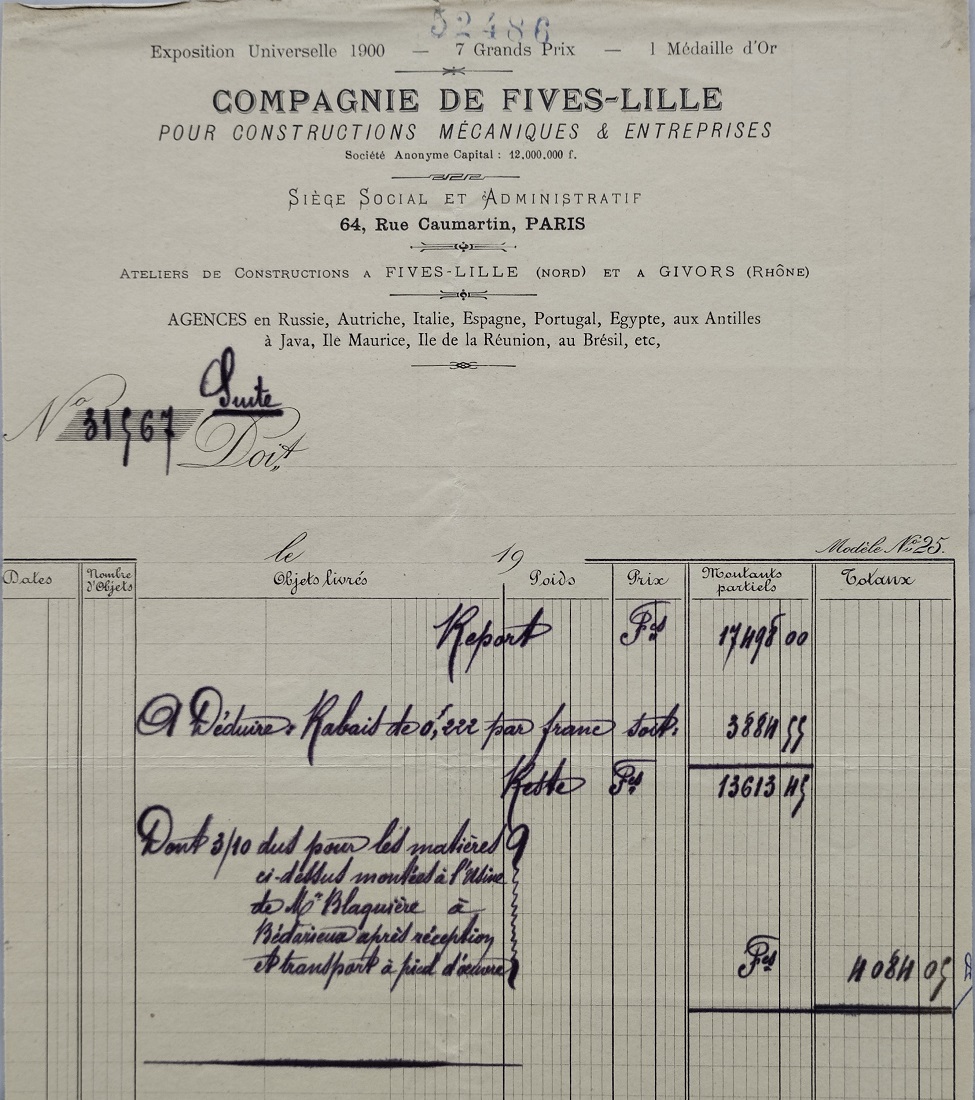 52486
Exposition Universelle 1900 — 7 Grands Prix — 1 Médaille d'Or
COMPAGNIE DE FIVES-LILLE
POUR CONSTRUCTIONS MÉCANIQUES & ENTREPRISES
Société Anonyme Capital : 12.000.000 f.
SIÈGE SOCIAL ET ADMINISTRATIF
64, Rue Caumartin, PARIS
ATELIERS DE CONSTRUCTIONS A FIVES-LILLE (NORD) ET A GIVORS (RHÔNE)
AGENCES en Russie, Autriche, Italie, Espagne, Portugal, Egypte, aux Antilles
à Java, Ile Maurice, Ile de la Réunion, au Brésil, etc,
Suite
No 31567 Doit
le 19 Modèle No 25.
Dates Nombre d'Objets Objets livrés Poids Prix Montants partiels Totaux
Report Fcs 17498 00
A Déduire : Rabais de 0f,222 par franc soit : 3884 55
Reste Fcs 13613 45
Dont 3/10 dus pour les matières
ci-dessus montées à l'Usine
de Mr Blaquière à
Bédarieux après réception
et transport à pied d'œuvre Fcs 4084 05